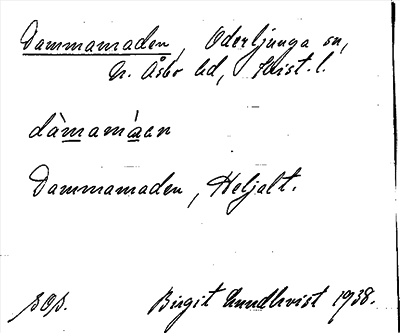 Dammamaden, Oderljunga sn,
N. Åsbo hd, Krist. l.
dàmamáen
Dammamaden, Heljalt.
sOs. Birgit Lundkvist 1938.